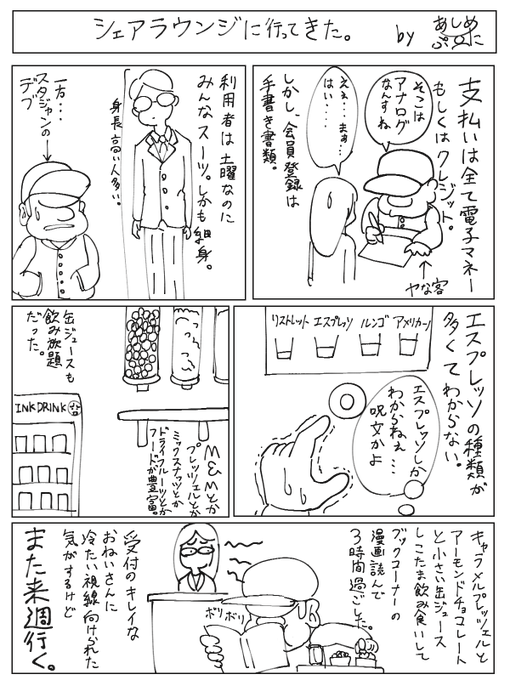 シェアラウンジに行ってきた。
by あしめ
ぷ に
支払いは全て電子マネー
もしくはクレジット。
そこは
アナログ
なんすね
ええ…まぁ…
はい…
しかし、会員登録は
手書き書類。
ヤな客
利用者は土曜なのに
みんなスーツ。しかも細身。
身長高い人多い。
一方…
スタジャンの
デブ
エスプレッソの種類が
多くてわからない。
リストレット エスプレッソ ルンゴ アメリカーノ
エスプレッソしか
わからねぇ…
呪文かよ
M&Mとか
プレッツェルとか
ミックスナッツとか
ドライフルーツとか
フードが豊富。
缶ジュースも
飲み放題
だった。
INKDRINK
キャラメルプレッツェルと
アーモンドチョコレート
と小さい缶ジュース
しこたま飲み食いして
ブックコーナーの
漫画読んで
3時間過ごした。
ボリボリ
受付のキレイな
おねいさんに
冷たい視線向けられた
気がするけど
また来週行く。